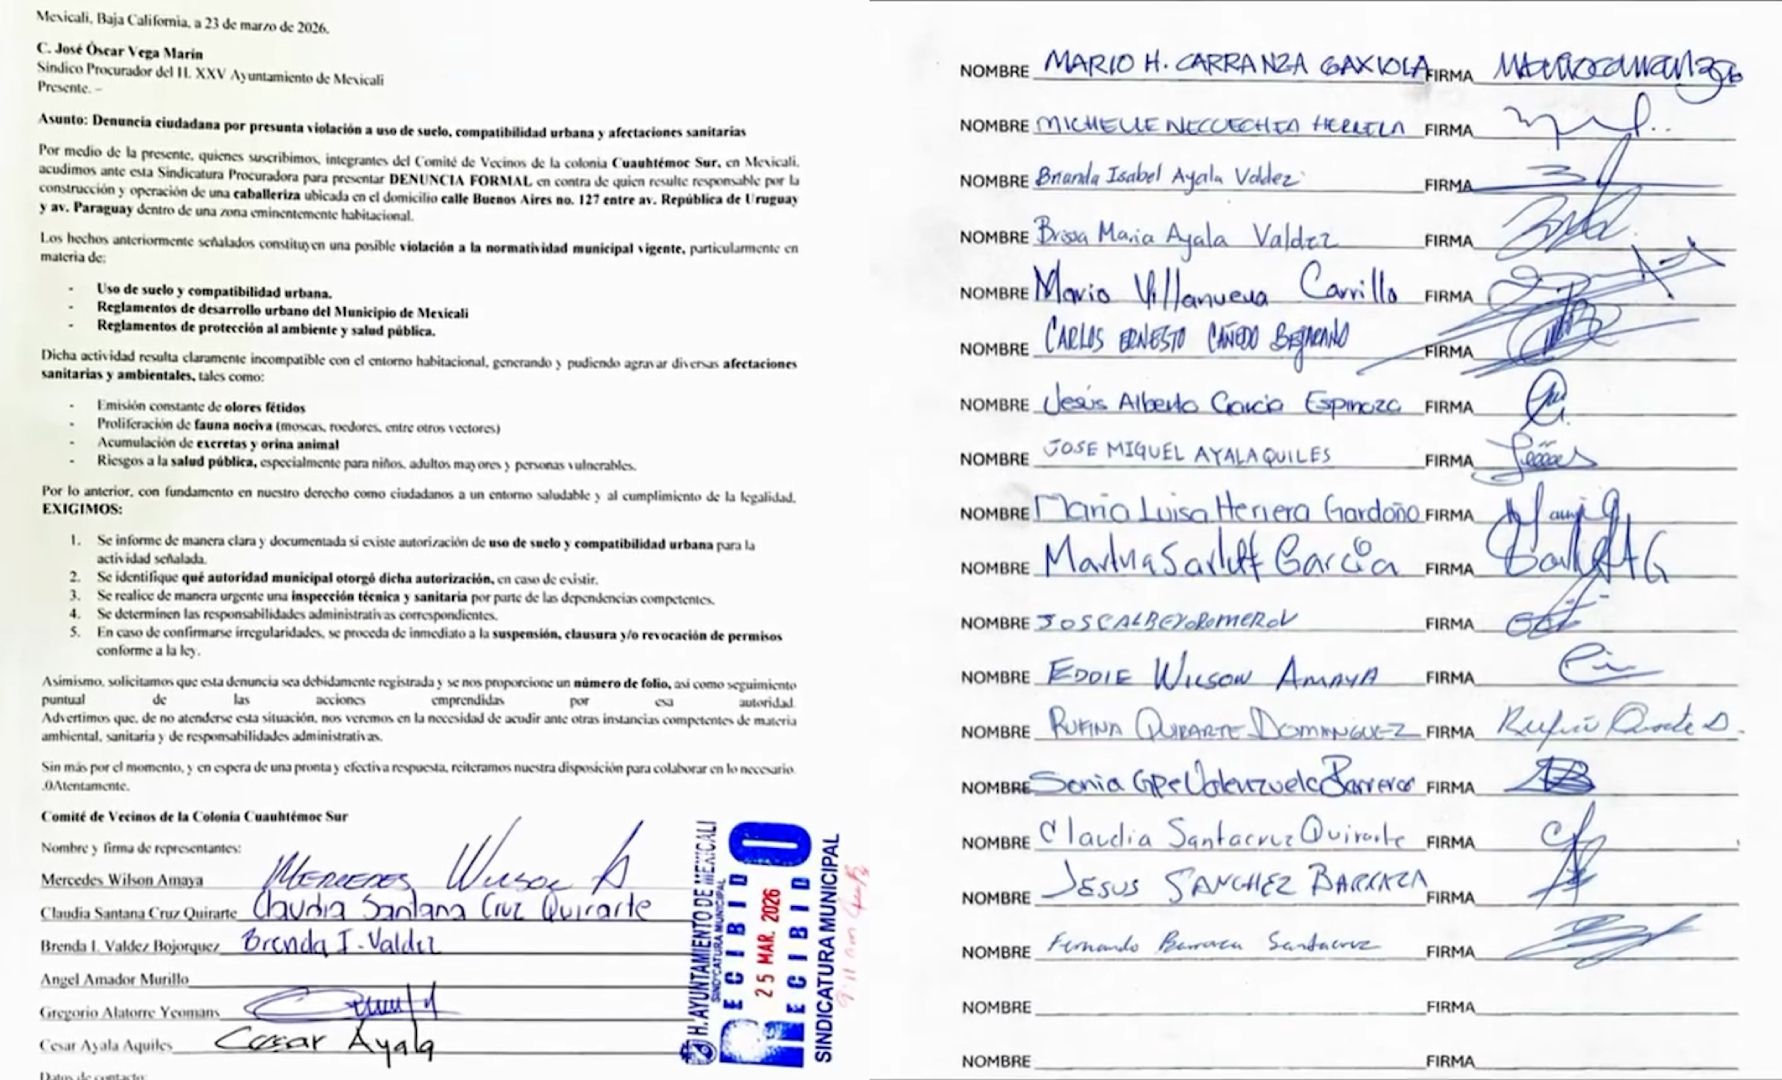 Mexicali, Baja California, a 23 de marzo de 2026.
C. José Óscar Vega Marín
Síndico Procurador del H. XXV Ayuntamiento de Mexicali
Presente. –
Asunto: Denuncia ciudadana por presunta violación a uso de suelo, compatibilidad urbana y afectaciones sanitarias
Por medio de la presente, quienes suscribimos, integrantes del Comité de Vecinos de la colonia Cuauhtémoc Sur, en Mexicali,
acudimos ante esta Sindicatura Procuradora para presentar DENUNCIA FORMAL en contra de quien resulte responsable por la
construcción y operación de una caballeriza ubicada en el domicilio calle Buenos Aires no. 127 entre av. República de Uruguay
y av. Paraguay dentro de una zona eminentemente habitacional.
Los hechos anteriormente señalados constituyen una posible violación a la normatividad municipal vigente, particularmente en
materia de:
- Uso de suelo y compatibilidad urbana.
- Reglamentos de desarrollo urbano del Municipio de Mexicali
- Reglamentos de protección al ambiente y salud pública.
Dicha actividad resulta claramente incompatible con el entorno habitacional, generando y pudiendo agravar diversas afectaciones
sanitarias y ambientales, tales como:
- Emisión constante de olores fétidos
- Proliferación de fauna nociva (moscas, roedores, entre otros vectores)
- Acumulación de excretas y orina animal
- Riesgos a la salud pública, especialmente para niños, adultos mayores y personas vulnerables.
Por lo anterior, con fundamento en nuestro derecho como ciudadanos a un entorno saludable y al cumplimiento de la legalidad,
EXIGIMOS:
1. Se informe de manera clara y documentada si existe autorización de uso de suelo y compatibilidad urbana para la
actividad señalada.
2. Se identifique qué autoridad municipal otorgó dicha autorización, en caso de existir.
3. Se realice de manera urgente una inspección técnica y sanitaria por parte de las dependencias competentes.
4. Se determinen las responsabilidades administrativas correspondientes.
5. En caso de confirmarse irregularidades, se proceda de inmediato a la suspensión, clausura y/o revocación de permisos
conforme a la ley.
Asimismo, solicitamos que esta denuncia sea debidamente registrada y se nos proporcione un número de folio, así como seguimiento
puntual de las acciones emprendidas por esa autoridad.
Advertimos que, de no atenderse esta situación, nos veremos en la necesidad de acudir ante otras instancias competentes de materia
ambiental, sanitaria y de responsabilidades administrativas.
Sin más por el momento, y en espera de una pronta y efectiva respuesta, reiteramos nuestra disposición para colaborar en lo necesario.
.0Atentamente.
Comité de Vecinos de la Colonia Cuauhtémoc Sur
Nombre y firma de representantes:
Mercedes Wilson Amaya MERCEDES Wilson A
Claudia Santana Cruz Quirarte Claudia Santana Cruz Quirarte
Brenda I. Valdez Bojorquez Brenda I. Valdez
Angel Amador Murillo
Gregorio Alatorre Yeomans
Cesar Ayala Aquiles Cesar Ayala
Datos de contacto:
H. AYUNTAMIENTO DE MEXICALI
SINDICATURA MUNICIPAL
RECIBIDO
25 MAR. 2026
RECIBIDO
SINDICATURA MUNICIPAL
NOMBRE MARIO H. CARRANZA GAXIOLA FIRMA
NOMBRE MICHELLE NECUECHEA HERRERA FIRMA
NOMBRE Brianda Isabel Ayala Valdez FIRMA
NOMBRE Brissa Maria Ayala Valdez FIRMA
NOMBRE Mario Villanueva Carrillo FIRMA
NOMBRE CARLOS ERNESTO CAÑEDO BEJARANO FIRMA
NOMBRE Jesús Alberto García Espinoza FIRMA
NOMBRE JOSE MIGUEL AYALA QUILES FIRMA
NOMBRE Maria Luisa Herrera Gardoño FIRMA
NOMBRE Garcia FIRMA
NOMBRE FIRMA
NOMBRE EDDIE WILSON AMAYA FIRMA
NOMBRE RUFINA QUIRARTE DOMINGUEZ FIRMA
NOMBRE Sonia Gpe Valenzuela Barreras FIRMA
NOMBRE Claudia Santacruz Quirarte FIRMA
NOMBRE JESUS SANCHEZ BARRAZA FIRMA
NOMBRE Fernando Barraza Santacruz FIRMA
NOMBRE FIRMA
NOMBRE FIRMA